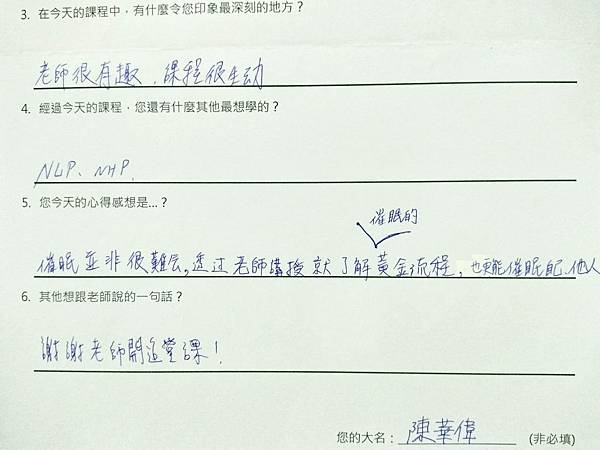 3. 在今天的課程中，有什麼令您印象最深刻的地方？
老師很有趣，課程很生动
4. 經過今天的課程，您還有什麼其他最想學的？
NLP、NHP.
5. 您今天的心得感想是...？
催眠的
催眠並非很難忘,透过老師講授就了解黃金流程，也更能催眠配他人
6. 其他想跟老師說的一句話？
謝謝老師開這堂課！
您的大名：陳華偉 (非必填)